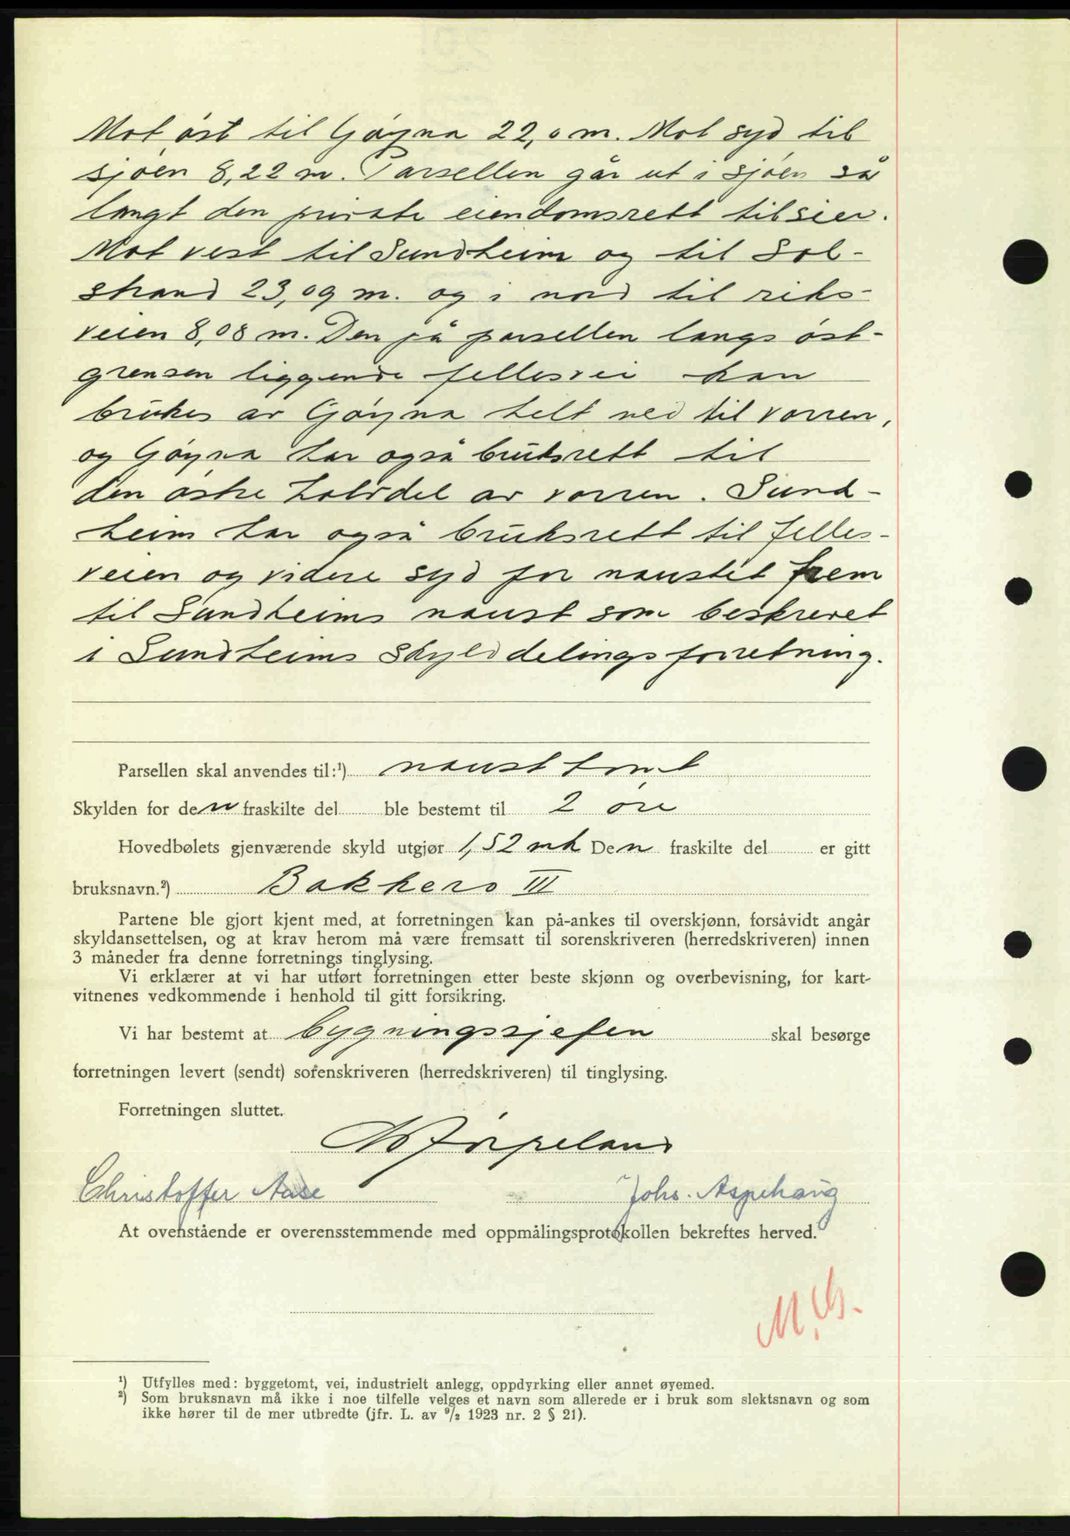 Mot øst til Gøyna 22,0 m. Mot syd til
sjøen 8,22 m. Parsellen går ut i sjøen så
langt den private eiendomsrett tilsier.
Mot vest til Sundheim og til Sol-
strand 23,09 m. og i nord til riks-
veien 8,08 m. Den på parsellen langs øst-
grensen liggende fellesvei kan
brukes av Gøyna helt ned til vorren,
og Gøyna har også bruksrett til
den østre halvdel av vorren. Sund-
heim har også bruksrett til felles-
veien og videre syd for naustet frem
til Sundheims naust som beskrevet
i Sundheims skylddelingsforretning.
Parsellen skal anvendes til:¹) nausttomt
Skylden for den fraskilte del ble bestemt til 2 øre
Hovedbølets gjenværende skyld utgjør 1,52 mk Den fraskilte del er gitt
bruksnavn.²) Bakkero III
Partene ble gjort kjent med, at forretningen kan på-ankes til overskjønn, forsåvidt angår
skyldansettelsen, og at krav herom må være fremsatt til sorenskriveren (herredskriveren) innen
3 måneder fra denne forretnings tinglysing.
Vi erklærer at vi har utført forretningen etter beste skjønn og overbevisning, for kart-
vitnenes vedkommende i henhold til gitt forsikring.
Vi har bestemt at bygningssjefen skal besørge
forretningen levert (sendt) sorenskriveren (herredskriveren) til tinglysing.
Forretningen sluttet.
Tørpeland
Christoffer Aase Johs. Aspehaug
At ovenstående er overensstemmende med oppmålingsprotokollen bekreftes herved.
¹) Utfylles med: byggetomt, vei, industrielt anlegg, oppdyrking eller annet øyemed.
²) Som bruksnavn må ikke i noe tilfelle velges et navn som allerede er i bruk som slektsnavn og som
ikke hører til de mer utbredte (jfr. L. av ⁹/₂ 1923 nr. 2 § 21).